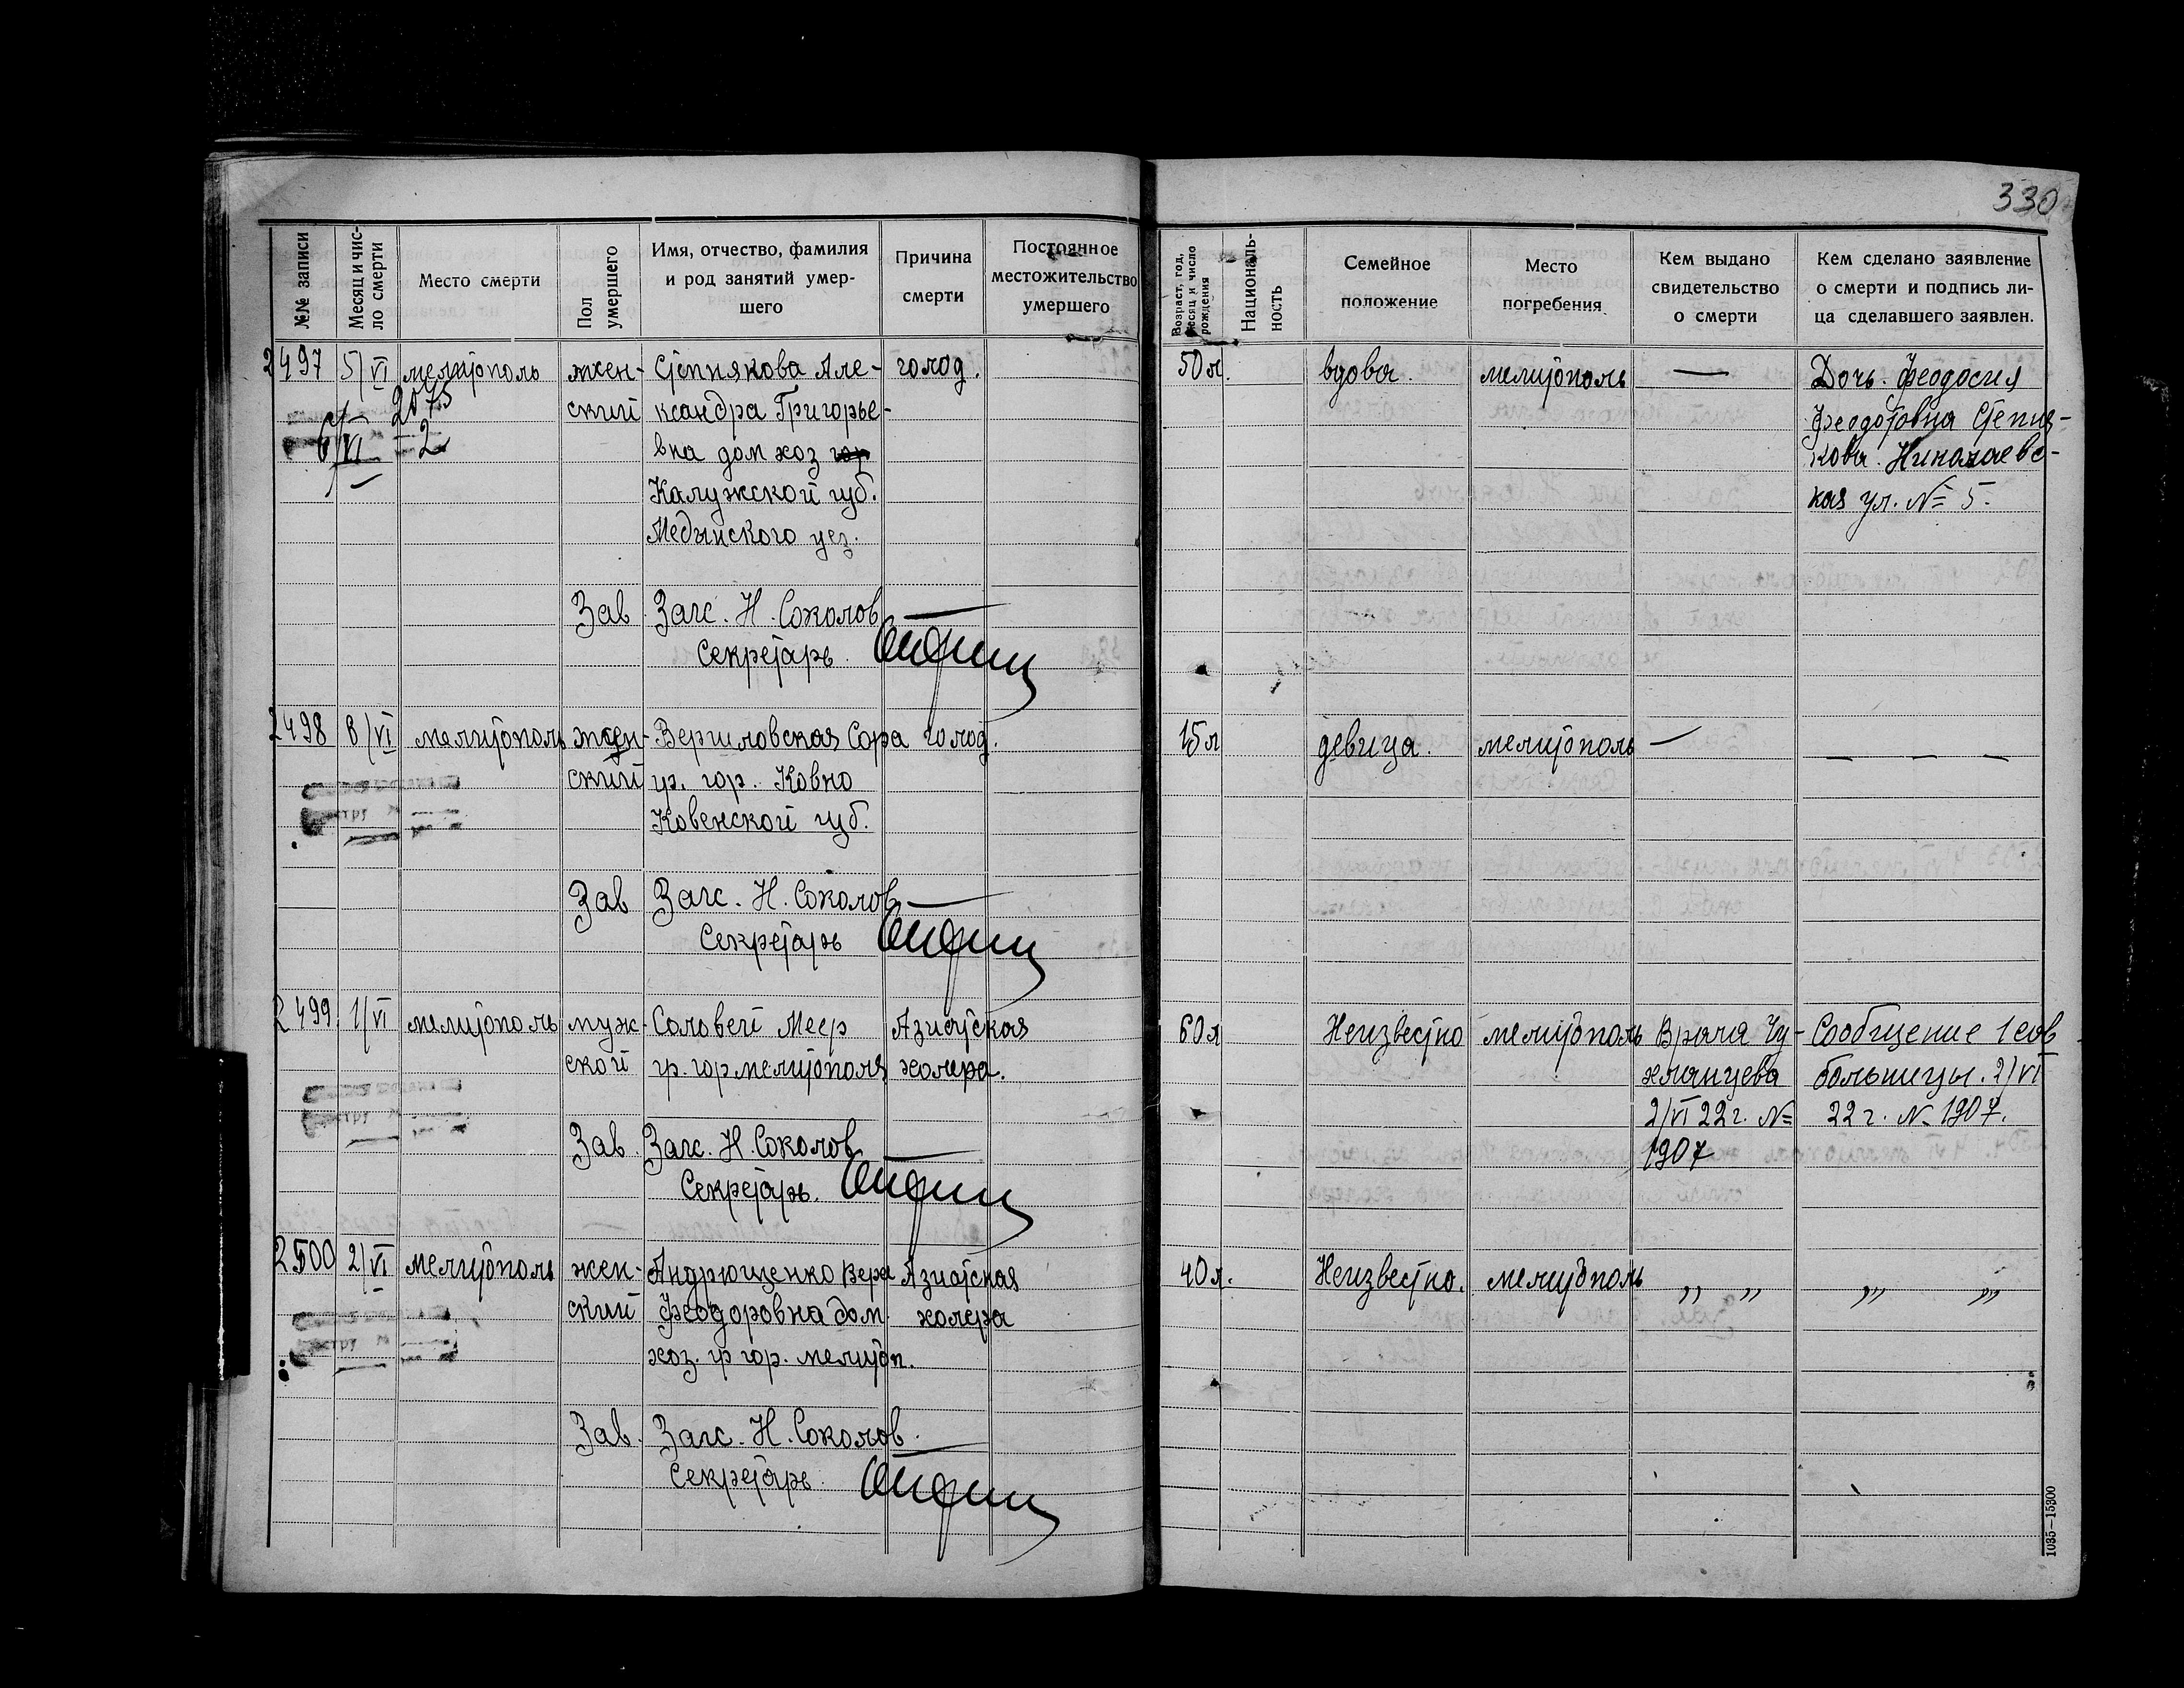 330
№№ записи
Месяц и чис-
ло смерти
Место смерти
Пол
умершего
Имя, отчество, фамилия
и род занятий умер-
шего
Причина
смерти
Постоянное
местожительство
умершего
Возраст, год,
месяц и число
рождения
Националь-
ность
Семейное
положение
Место
погребения
Кем выдано
свидетельство
о смерти
Кем сделано заявление
о смерти и подпись ли-
ца сделавшего заявлен.
2497 5/VI мелитополь жен- Степнякова Але- голод. 50 л. вдова. мелитополь — Дочь. Феодосия
2075
ский ксандра Григорье- Феодотовна Степня-
6/VI 2
вна дом хоз кова. Николаевс-
Калужской губ. кая ул. № 5.
Медынского уез.
Зав Загс. Н. Соколов
Секретарь.
2498 8/VI мелитополь жен- Вергиловская Сора голод. 15 л девица. мелитополь — — — —
ский гр. гор. Ковно
Ковенской губ.
Зав Загс. Н. Соколов
Секретарь
2499 1/VI мелитополь муж- Соловей Меер Азиатская 60 л Неизвестно мелитополь Врача Чу- Сообщение 1 сов
ской гр. гор мелитополя холера. хлянцева больницы. 2/VI
2/VI 22 г. № 22 г. № 1907.
1907
Зав. Загс. Н. Соколов
Секретарь.
2500 2/VI мелитополь жен- Андрющенко Вера Азиатская 40 л. Неизвестно. мелитополь ,, ,, ,,, ,,,
ский Феодоровна дом. холера
хоз. гр гор. мелитоп.
Зав. Загс. Н. Соколов.
Секретарь.
1035—15300